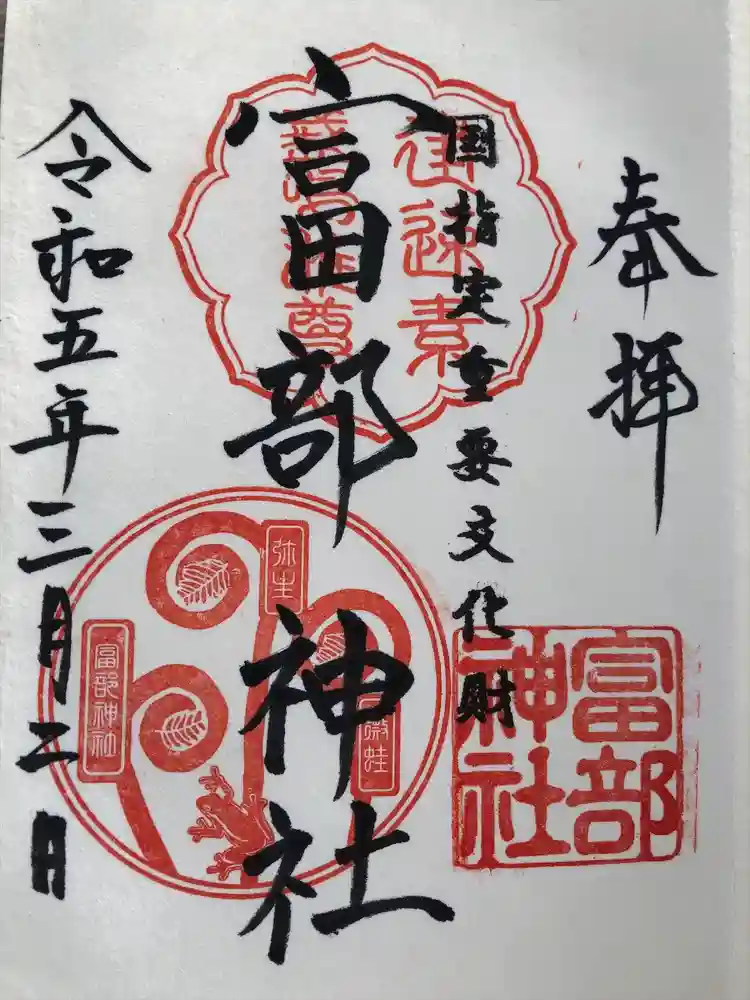 奉拝
国指定重要文化財
富部神社
令和五年三月二日
速素
尊
弥生
富部神社
蛙
富部
神社